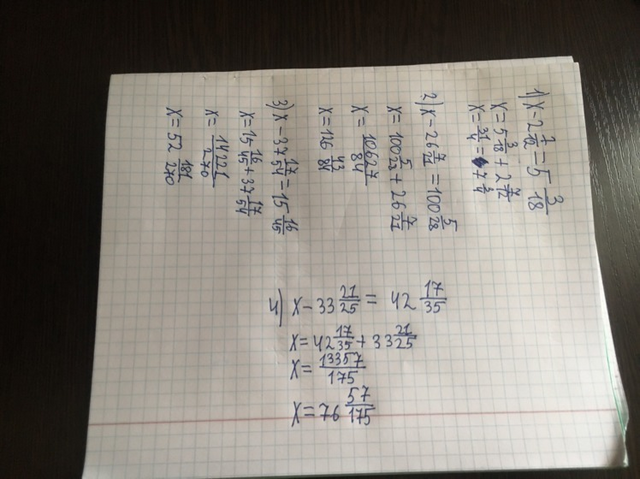 1) x - 2 7/12 = 5 3/18
x = 5 3/18 + 2 7/12
x = 31/4 = 7 3/4
2) x - 26 7/21 = 100 5/28
x = 100 5/28 + 26 7/21
x = 10627/84
x = 126 43/84
3) x - 37 17/54 = 15 16/45
x = 15 16/45 + 37 17/54
x = 14221/270
x = 52 181/270
4) x - 33 21/25 = 42 17/35
x = 42 17/35 + 33 21/25
x = 13357/175
x = 76 57/175